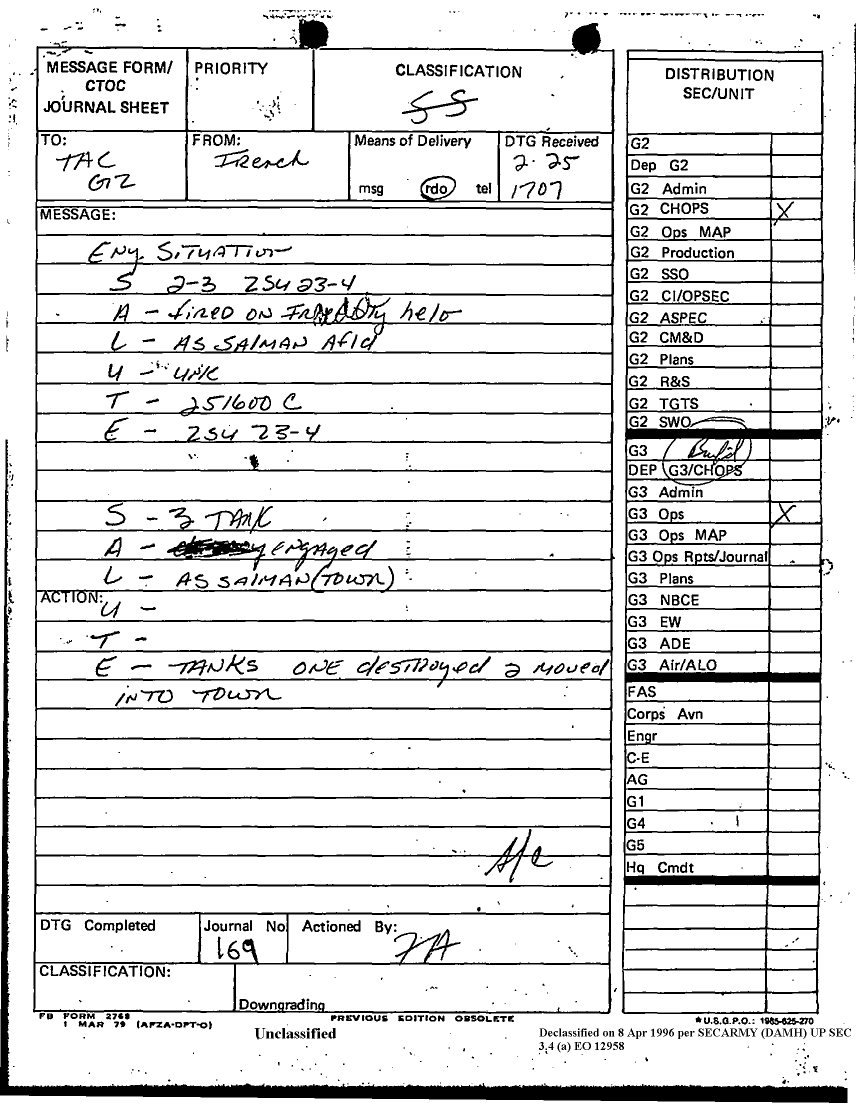 MESSAGE FORM/
CTOC
JOURNAL SHEET
PRIORITY
CLASSIFICATION
SS
TO:
TAC
G2
FROM:
French
Means of Delivery
msg rdo tel
DTG Received
2-25
1707
MESSAGE:
ENY SITUATION
S 2-3 ZSU 23-4
A - fired ON helo
L - AS SALMAN Afld
U - UNK
T - 251600 C
E - ZSU 23-4
S - 3 TANK
A - engaged
L - AS SALMAN (TOWN)
ACTION:
U -
T -
E - TANKS ONE destroyed 2 moved
INTO TOWN
DTG Completed
Journal No.
169
Actioned By:
CLASSIFICATION:
Downgrading
FB FORM 2768
1 MAR 79 (AFZA-DPT-O)
PREVIOUS EDITION OBSOLETE
DISTRIBUTION
SEC/UNIT
G2
Dep G2
G2 Admin
G2 CHOPS X
G2 Ops MAP
G2 Production
G2 SSO
G2 CI/OPSEC
G2 ASPEC
G2 CM&D
G2 Plans
G2 R&S
G2 TGTS
G2 SWO
G3
DEP G3/CHOPS
G3 Admin
G3 Ops X
G3 Ops MAP
G3 Ops Rpts/Journal
G3 Plans
G3 NBCE
G3 EW
G3 ADE
G3 Air/ALO
FAS
Corps Avn
Engr
C-E
AG
G1
G4
G5
Hq Cmdt
★U.S.G.P.O.: 1985-625-270
Unclassified
Declassified on 8 Apr 1996 per SECARMY (DAMH) UP SEC
3,4 (a) EO 12958